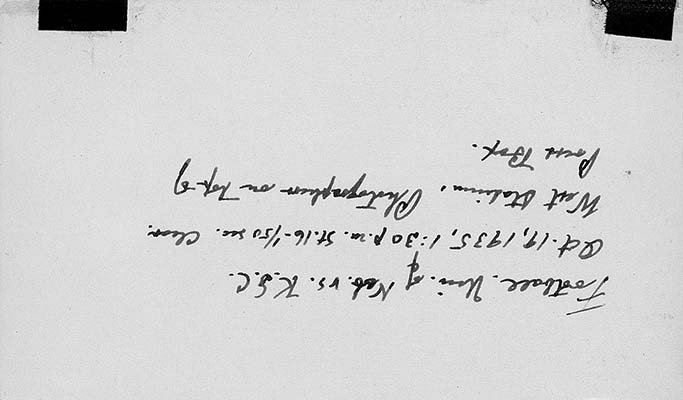 Football. Uni. of Neb. vs. K.S.C.
Oct. 19, 1935, 1:30 p.m. St.16-1/50 sec. Clear.
West Stadium. Photographer on Top of
Press Box.